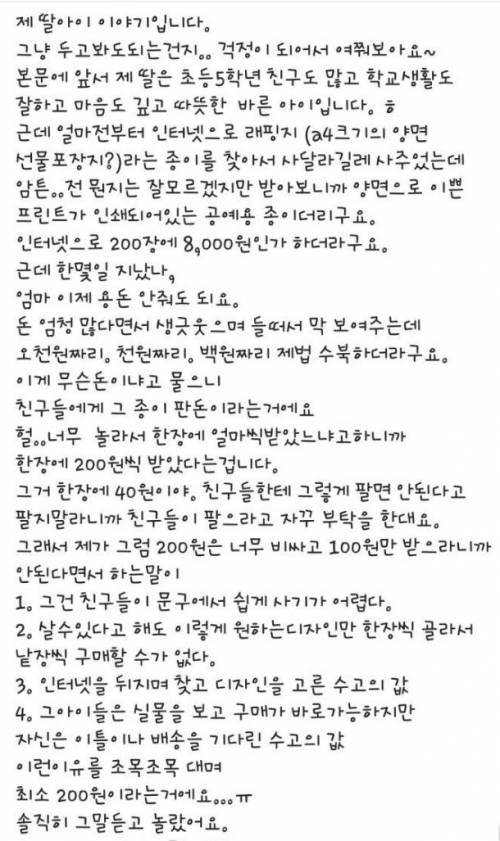 제 딸아이 이야기입니다.
그냥 두고봐도되는건지.. 걱정이 되어서 여쭤보아요~
본문에 앞서 제 딸은 초등5학년 친구도 많고 학교생활도
잘하고 마음도 깊고 따뜻한 바른 아이입니다. ㅎ
근데 얼마전부터 인터넷으로 래핑지 (a4크기의 양면
선물포장지?)라는 종이를 찾아서 사달라길레 사주었는데
암튼..전 뭔지는 잘모르겠지만 받아보니까 양면으로 이쁜
프린트가 인쇄되어있는 공예용 종이더리구요.
인터넷으로 200장에 8,000원인가 하더라구요.
근데 한몇일 지났나,
엄마 이제 용돈 안줘도 되요.
돈 엄청 많다면서 생긋웃으며 들떠서 막 보여주는데
오천원짜리, 천원짜리, 백원짜리 제법 수북하더라구요.
이게 무슨돈이냐고 물으니
친구들에게 그 종이 판돈이라는거에요
헐..너무 놀라서 한장에 얼마씩받았느냐고하니까
한장에 200원씩 받았다는겁니다.
그거 한장에 40원이야. 친구들한테 그렇게 팔면 안된다고
팔지말라니까 친구들이 팔으라고 자꾸 부탁을 한대요.
그래서 제가 그럼 200원은 너무 비싸고 100원만 받으라니까
안된다면서 하는말이
1. 그건 친구들이 문구에서 쉽게 사기가 어렵다.
2. 살수있다고 해도 이렇게 원하는디자인만 한장씩 골라서
낱장씩 구매할 수가 없다.
3. 인터넷을 뒤지며 찾고 디자인을 고른 수고의 값
4. 그아이들은 실물을 보고 구매가 바로가능하지만
자신은 이틀이나 배송을 기다린 수고의 값
이런이유를 조목조목 대며
최소 200원이라는거에요...ㅠ
솔직히 그말듣고 놀랐어요.